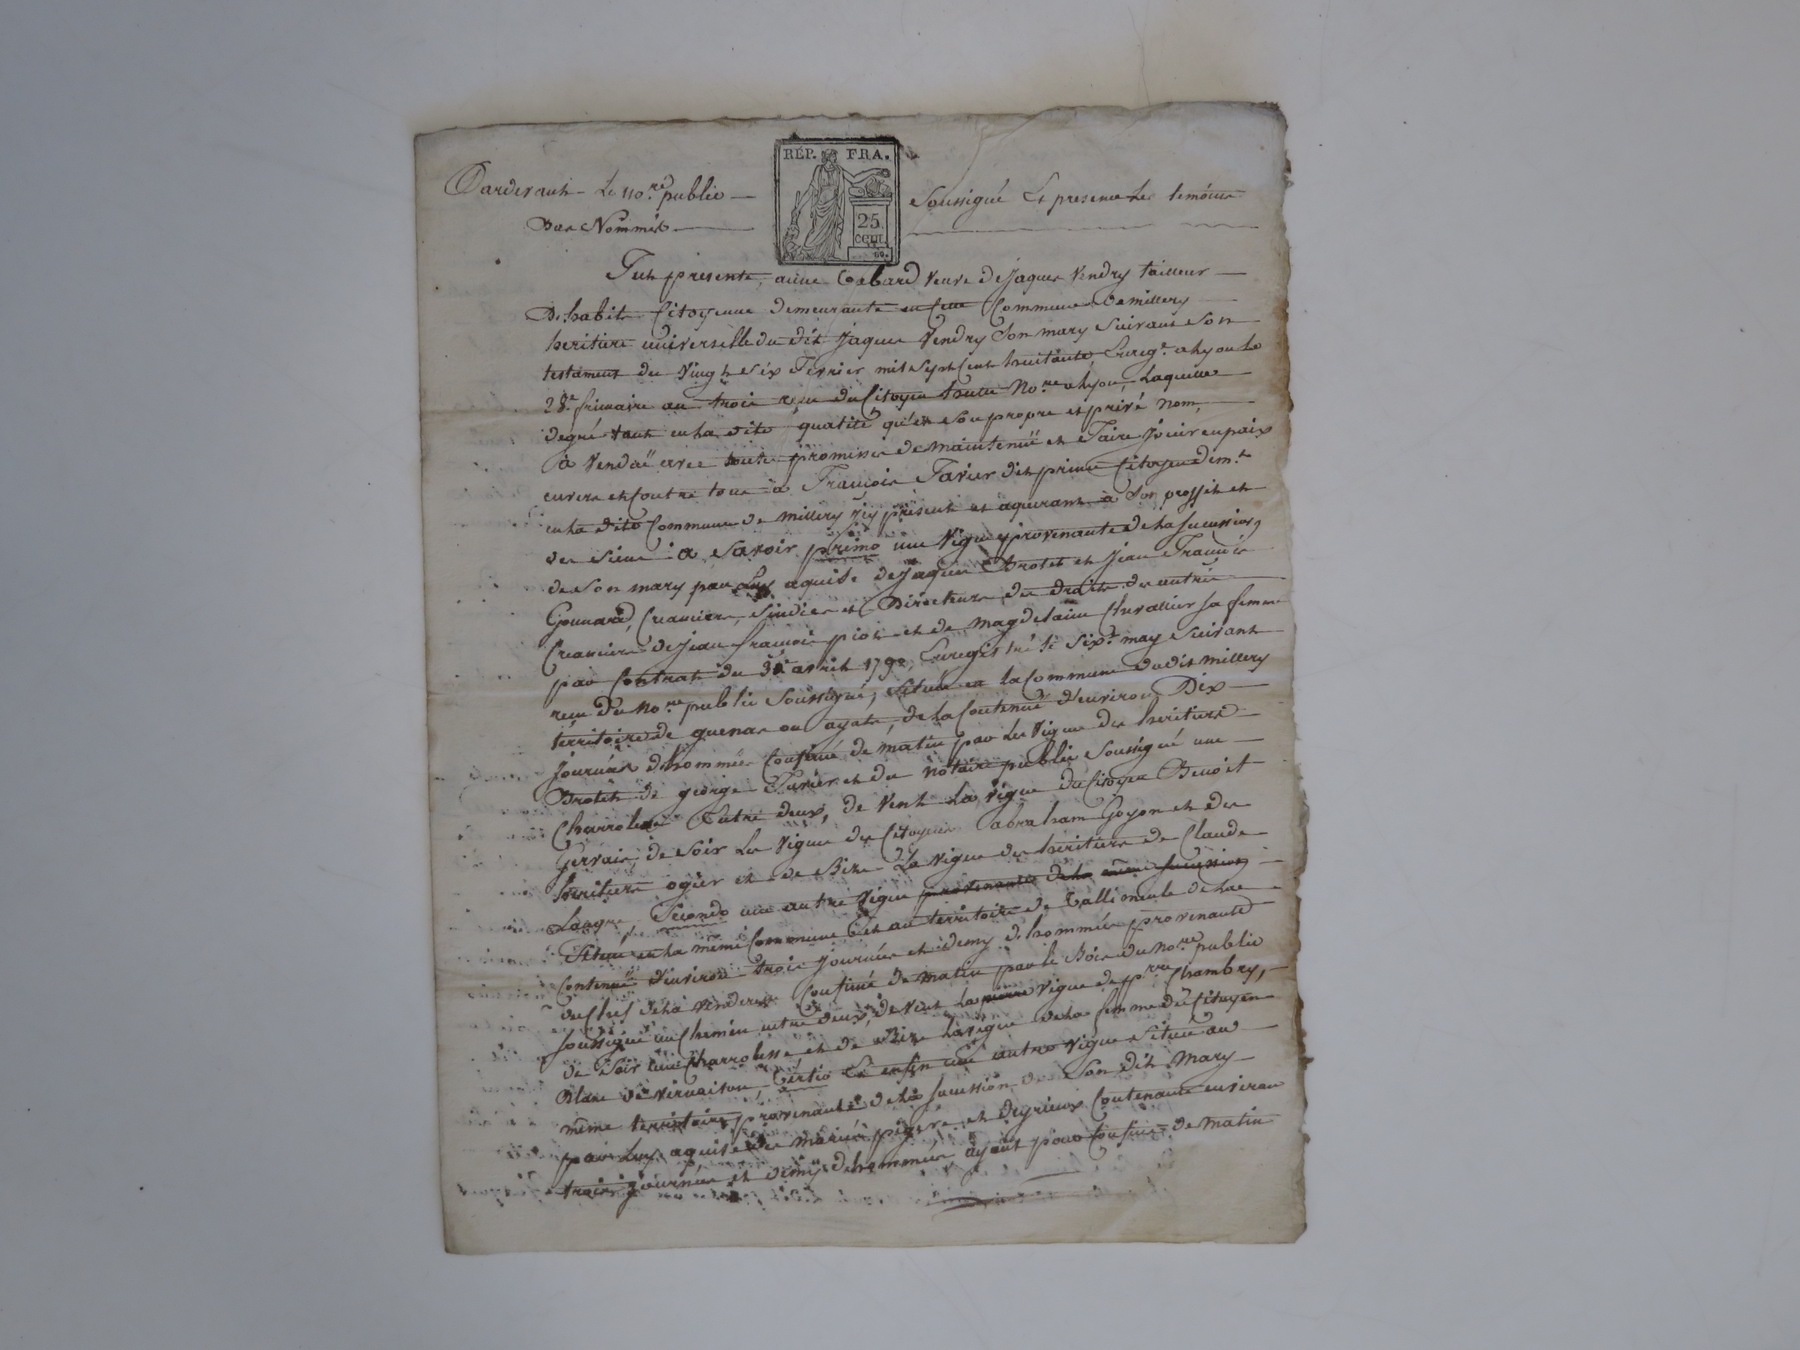 RÉP. FRA.
25
CENT.
Pardevant Le no.re public soussigné Et presence des temoins
Bas Nommés
Fut presente, anne Gabard veuve de Jaques Vendry tailleur
D'habits Citoyenne demeurante en Cette Commune de millery
heritiere universelle du dit Jaques Vendry Son mary Suivant Son
testament du vingt Six Fevrier mil Sept Cent huitante, Enreg.é a Lyon Le
28.e frimaire an trois reçu du Citoyen no.re a Lyon, Laquelle
de gré tant en La dite qualité qu'en son propre et privé nom,
à Vendu avec toutes promesses de maintenue et Faire Jouir en paix
envers et Contre tous à François Favier dit prince Citoyen dem.t
en La dite Commune de millery icy présent et aquerant à Son proffit et
des Siens : à Savoir primo une Vigne provenante de La Sucession
de Son mary par Luy aquise de Jaques Brotet et Jean François
Gonnard, Creanciers, Sindics et Directeurs des droits des autres
Creanciers de Jean françois piot et de Magdelaine Chevallier sa femme
par Contrat du 30.e avril 1792, Enregistré le Six.e may Suivant
reçu du No.re public Soussigné, Située en la Commune dudit millery
territoire de quenas ou ayats, de La Contenue d'environ Dix
Journées d'hommes Confiné de matin par Les Vignes des heritiers
Brotet de george Favier et du notaire public Soussigné une
Charroliere Entre deux, de Vent La Vigne du Citoyen Benoit
Gervais, de Soir Les Vignes des Citoyens abraham Goyon et des
heritiers ogier et de Bize La vigne des heritiers de Claude
Langre, Secondo une autre Vigne provenante de La même Sucession
Située en La même Commune et au territoire de Tallemeule de La
Contenue d'environ trois Journées et demy d'hommes provenante
du Chef de La venderesse Confiné de matin par le Bois du No.re public
soussigné un Chemin entre deux, de Vent La vigne de p.rre Chambry,
de Soir une Charroliere et de Bize La vigne de La femme du Citoyen
Blanc de Vernaison, tertio Et enfin une autre Vigne Située au
même territoire provenante de La Sucession de Son dit Mary
par Luy aquise des mariés pigere et degrieux Contenante environ
trois Journées et demy d'hommes, ayant pour Confins de Matin